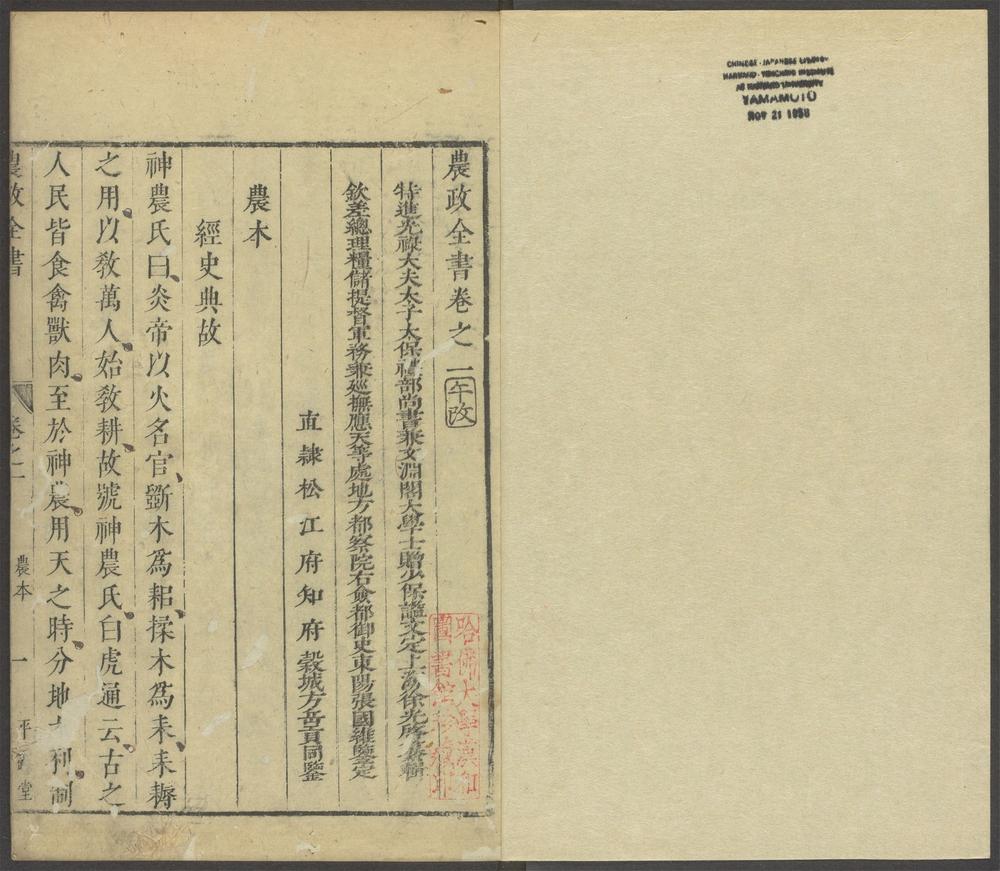 CHINESE-JAPANESE LIBRARY
HARVARD-YENCHING INSTITUTE
AT HARVARD UNIVERSITY
YAMAMOTO
NOV 21 1958
農政全書卷之一 午改
特進光祿大夫太子太保禮部尚書兼文淵閣大學士贈少保謚文定上海徐光啓纂輯
欽差總理糧儲提督軍務兼巡撫應天等處地方都察院右僉都御史東陽張國維鑒定
直隸松江府知府穀城方岳貢同鑒
農本
經史典故
神農氏曰炎帝以火名官斲木爲耜揉木爲耒耒耨
之用以敎萬人始敎耕故號神農氏白虎通云古之
人民皆食禽獸肉至於神農用天之時分地之利制
農政全書
卷之一
農本
一
平露堂
哈佛大學漢和
圖書館珍藏印